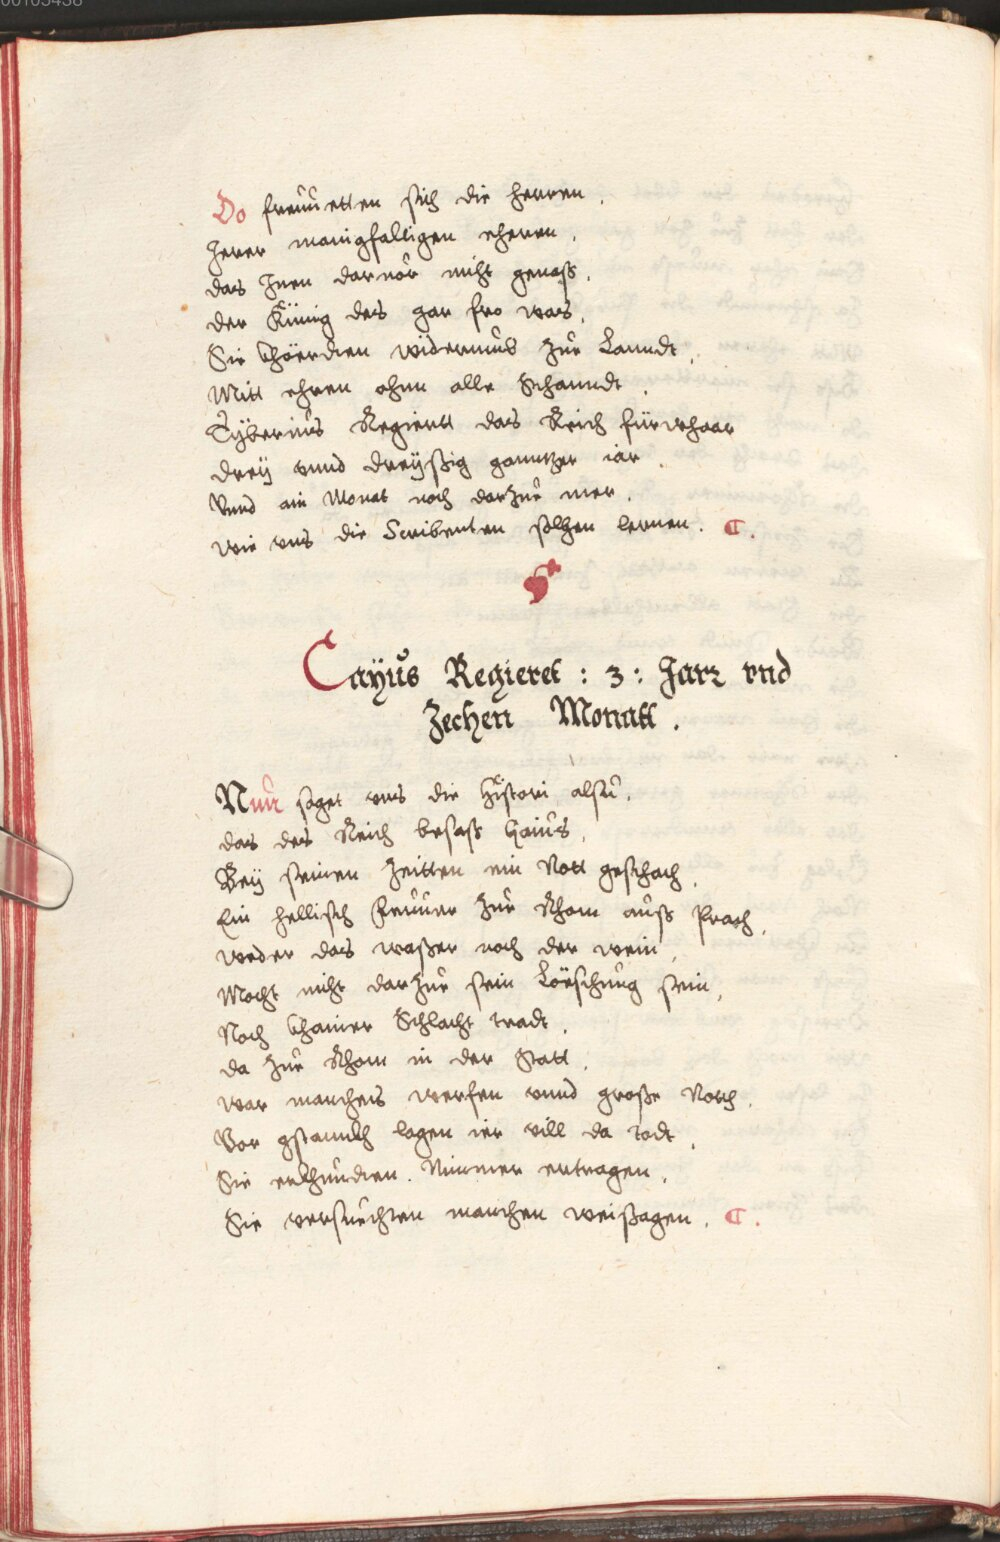 Do freuuetten sich die herren.
Jerer manigfalltigen eheren.
das Inen darvor nicht genaß.
der Künig des gar fro was.
Sie khöerdten widerumb zur Lanndt.
Mitt ehren ohnn alle Schanndt.
Tyberius Regiertt das Reich fürwhaar
dreÿ vnnd dreÿssig ganntzer iar.
Vnnd ain Monat noch darzue mer.
wie vns die Scribenten solhen lernen.
Cayus Regieret : 3 : Jarr vnd
Zechen Monatt.
Nun saget vns die Histori alsu.
das des Reich besaß Gaius.
Beÿ seinen Zeitten ein Nott geschach.
Ein hellisch Feuuer zue Rhom auß Prach.
weder das waßer noch der wein.
Mocht nicht darzue sein Lörschung sein.
Noch khainer Schlacht tradt.
da zue Rhom in der Statt.
war manches werfen vnnd große Noth.
Vor gstannckh lagen ier vill da todt.
Sie erkhundten. Nimmer ertragen.
Sie versuechten manchen weißagen.